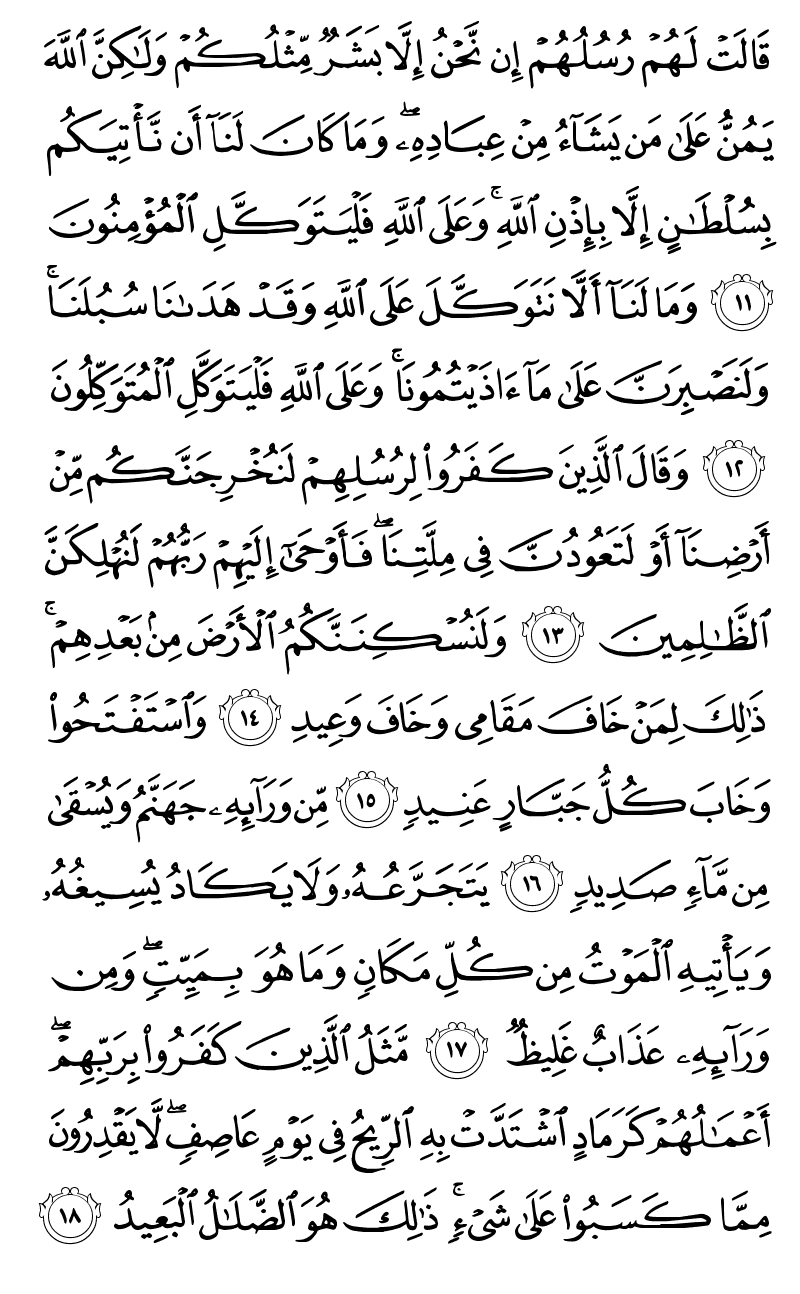 قَالَتْ لَهُمْ رُسُلُهُمْ إِن نَّحْنُ إِلَّا بَشَرٌ مِّثْلُكُمْ وَلَـٰكِنَّ ٱللَّهَ
يَمُنُّ عَلَىٰ مَن يَشَآءُ مِنْ عِبَادِهِۦ ۖ وَمَا كَانَ لَنَآ أَن نَّأْتِيَكُم
بِسُلْطَـٰنٍ إِلَّا بِإِذْنِ ٱللَّهِ ۚ وَعَلَى ٱللَّهِ فَلْيَتَوَكَّلِ ٱلْمُؤْمِنُونَ
١١ وَمَا لَنَآ أَلَّا نَتَوَكَّلَ عَلَى ٱللَّهِ وَقَدْ هَدَىٰنَا سُبُلَنَا ۚ
وَلَنَصْبِرَنَّ عَلَىٰ مَآ ءَاذَيْتُمُونَا ۚ وَعَلَى ٱللَّهِ فَلْيَتَوَكَّلِ ٱلْمُتَوَكِّلُونَ
١٢ وَقَالَ ٱلَّذِينَ كَفَرُوا۟ لِرُسُلِهِمْ لَنُخْرِجَنَّكُم مِّنْ
أَرْضِنَآ أَوْ لَتَعُودُنَّ فِى مِلَّتِنَا ۖ فَأَوْحَىٰٓ إِلَيْهِمْ رَبُّهُمْ لَنُهْلِكَنَّ
ٱلظَّـٰلِمِينَ ١٣ وَلَنُسْكِنَنَّكُمُ ٱلْأَرْضَ مِنۢ بَعْدِهِمْ ۚ
ذَٰلِكَ لِمَنْ خَافَ مَقَامِى وَخَافَ وَعِيدِ ١٤ وَٱسْتَفْتَحُوا۟
وَخَابَ كُلُّ جَبَّارٍ عَنِيدٍ ١٥ مِّن وَرَآئِهِۦ جَهَنَّمُ وَيُسْقَىٰ
مِن مَّآءٍ صَدِيدٍ ١٦ يَتَجَرَّعُهُۥ وَلَا يَكَادُ يُسِيغُهُۥ
وَيَأْتِيهِ ٱلْمَوْتُ مِن كُلِّ مَكَانٍ وَمَا هُوَ بِمَيِّتٍ ۖ وَمِن
وَرَآئِهِۦ عَذَابٌ غَلِيظٌ ١٧ مَّثَلُ ٱلَّذِينَ كَفَرُوا۟ بِرَبِّهِمْ ۖ
أَعْمَـٰلُهُمْ كَرَمَادٍ ٱشْتَدَّتْ بِهِ ٱلرِّيحُ فِى يَوْمٍ عَاصِفٍ ۖ لَّا يَقْدِرُونَ
مِمَّا كَسَبُوا۟ عَلَىٰ شَىْءٍ ۚ ذَٰلِكَ هُوَ ٱلضَّلَـٰلُ ٱلْبَعِيدُ ١٨